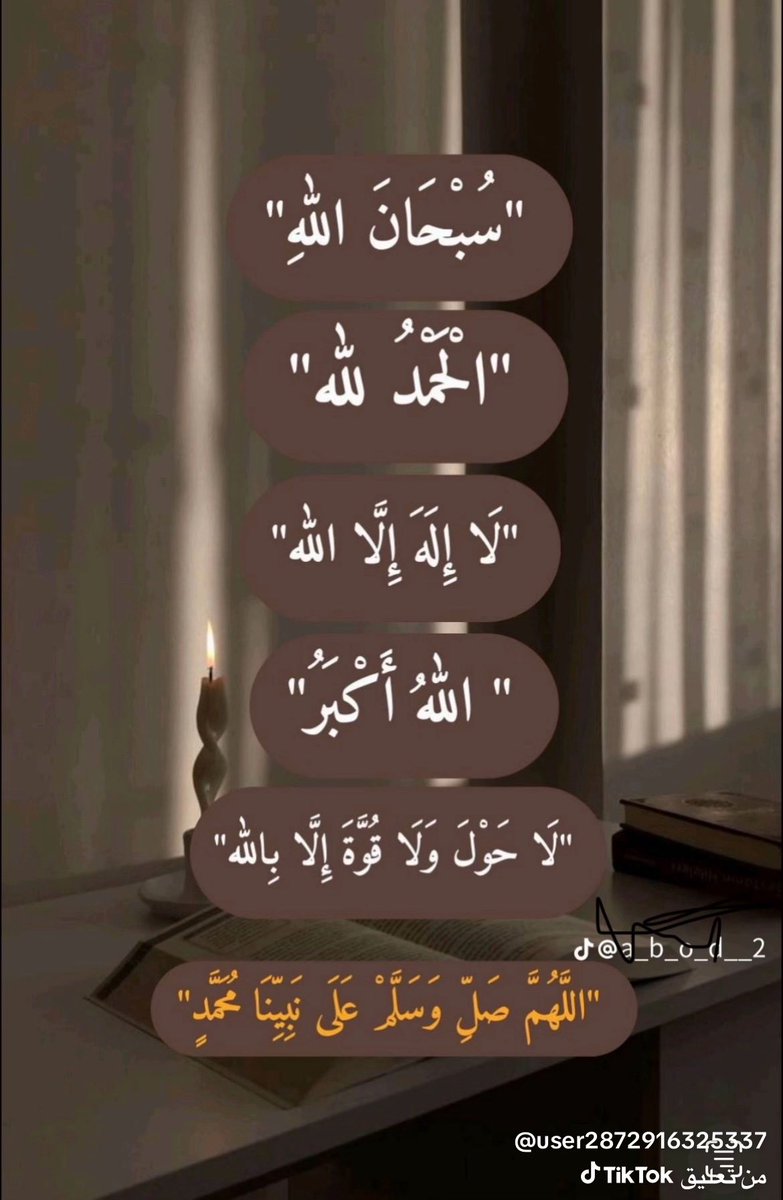 "سُبْحَانَ اللهِ"
"الْحَمْدُ لله"
"لَا إِلَهَ إِلَّا الله"
" اللهُ أَكْبَرُ"
"لَا حَوْلَ وَلَا قُوَّةَ إِلَّا بِالله"
@a_b_o_d__2
"اللَّهُمَّ صَلِّ وَسَلَّمْ عَلَى نَبِيِّنَا مُحَمَّدٍ"
@user2872916325337
من تعليق TikTok